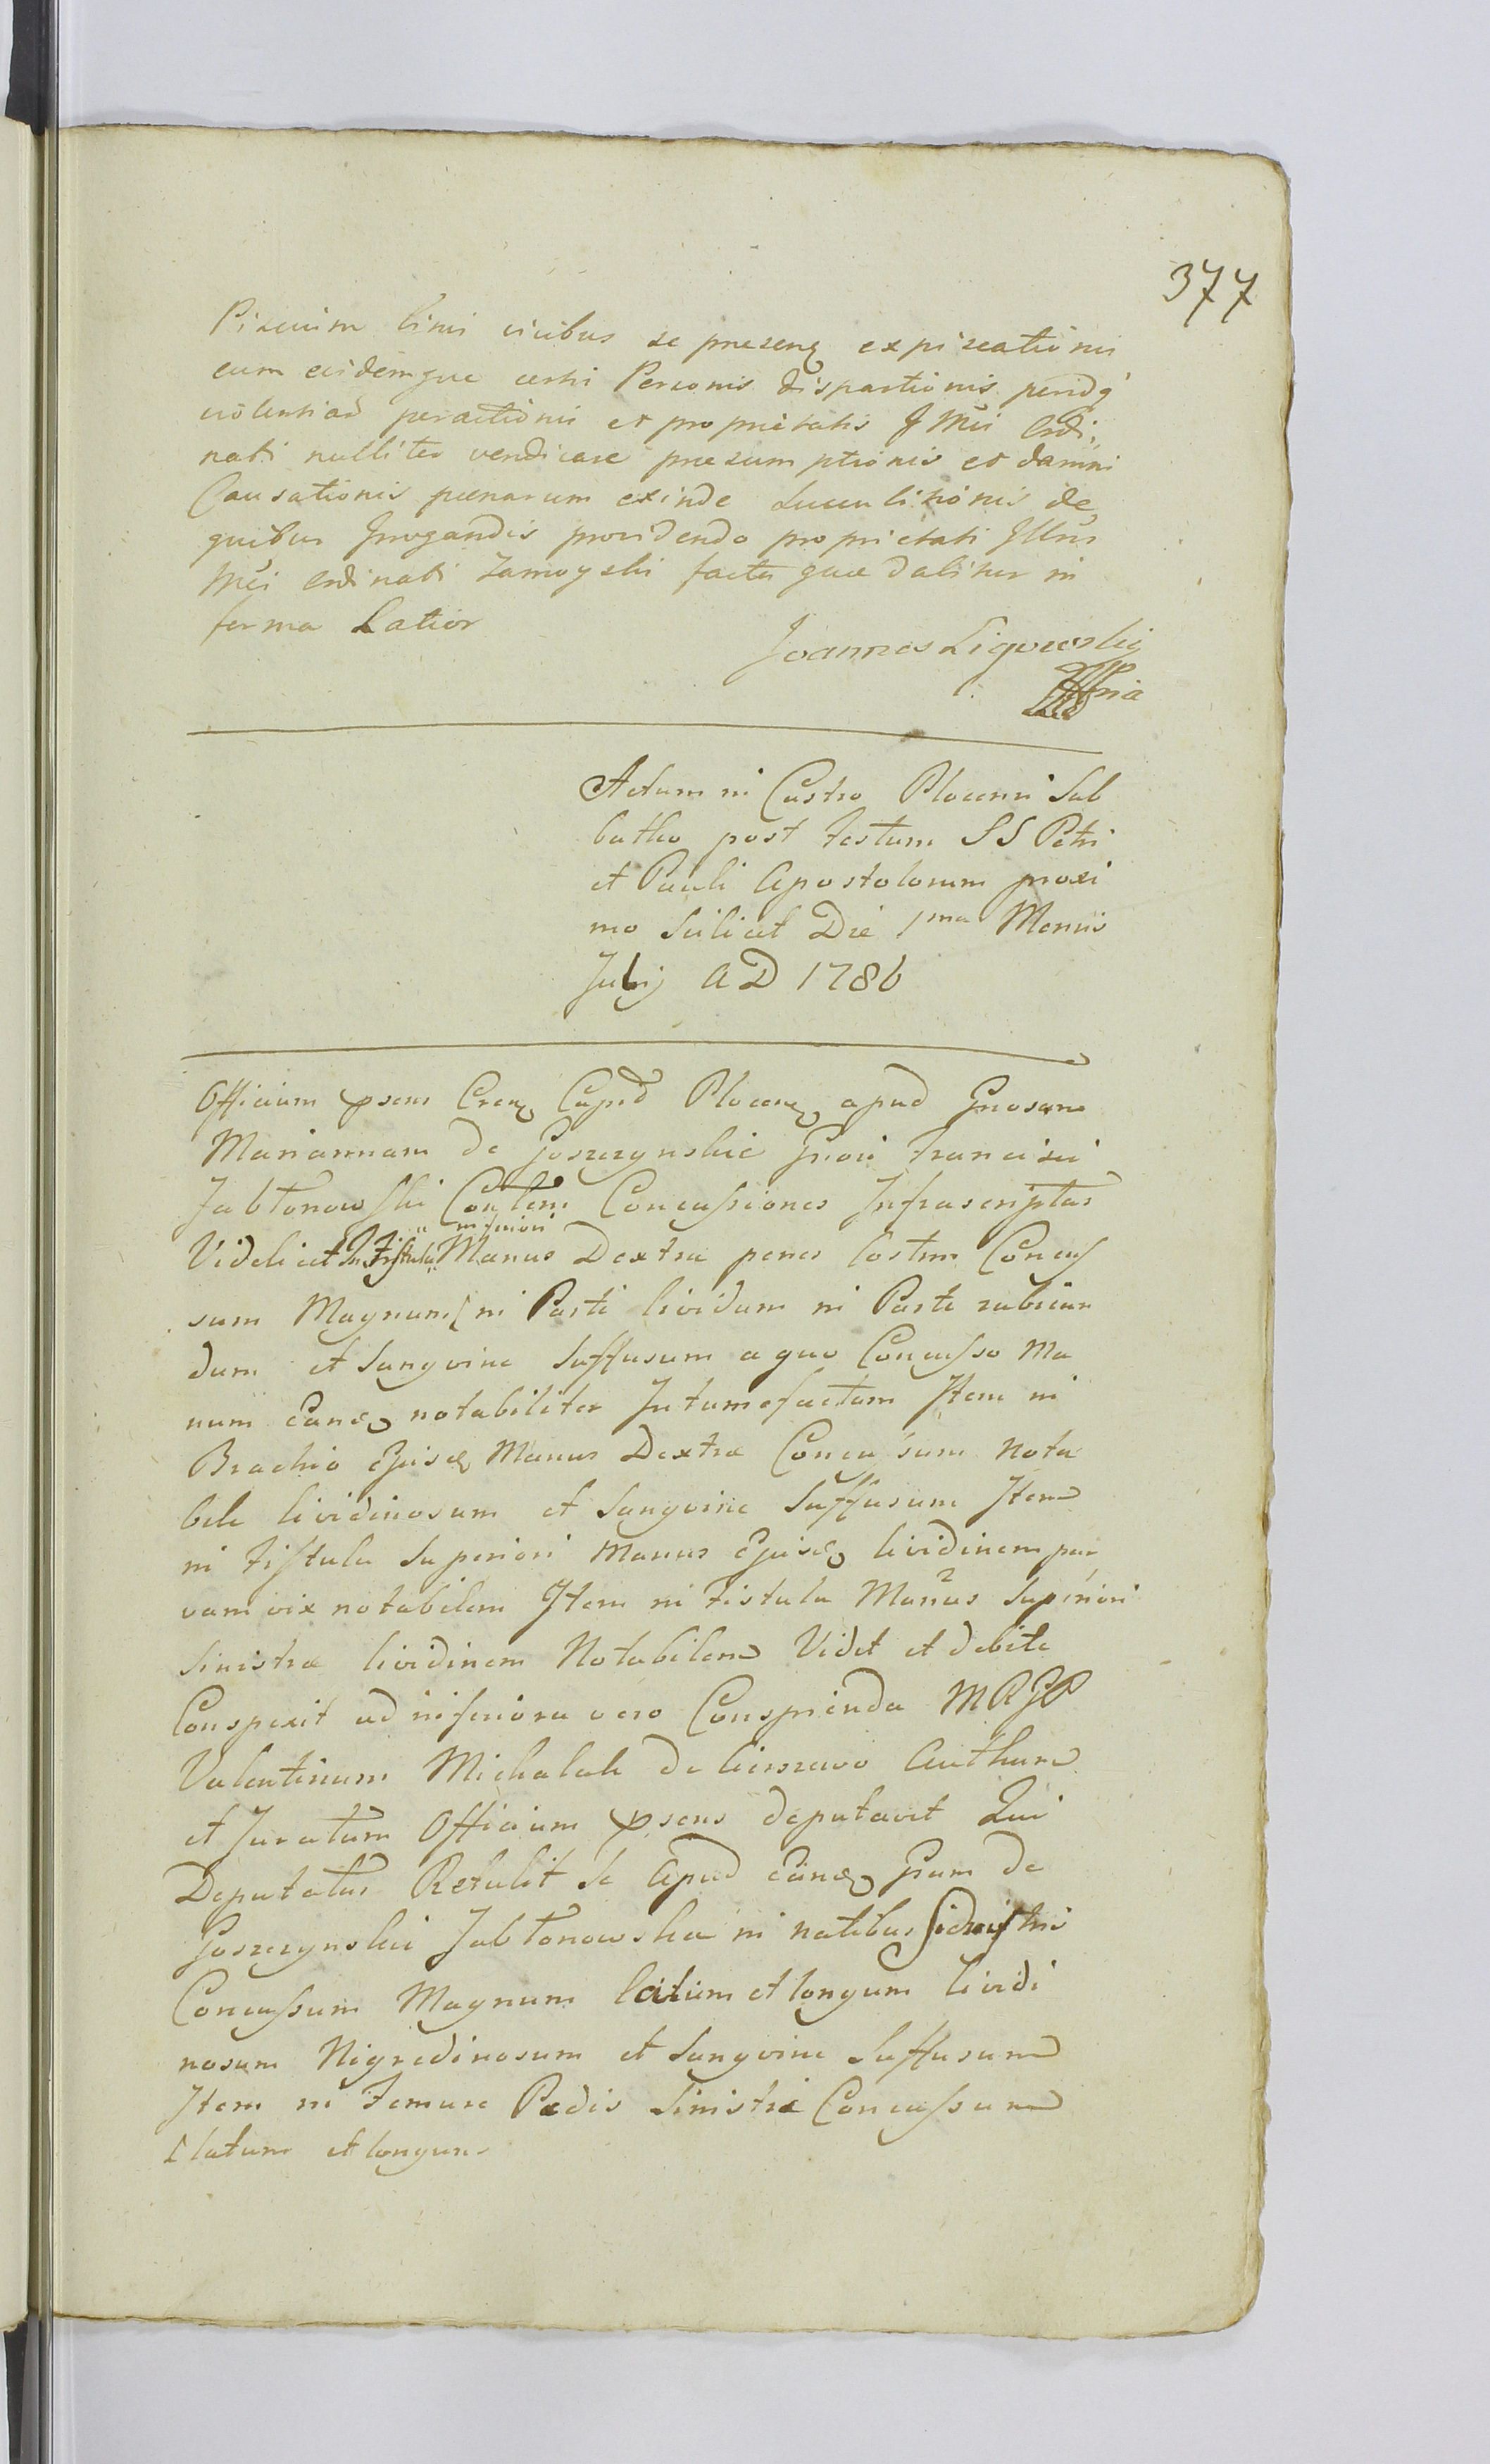 377
Piscium binis vicibus se presenq expiscationis
cum eisdemque certis Personis dispartionis peridq
violentias peractionis et proprietatis J Mci Ordi,
nati nulliter vendicare presumptionis et damni
Causationis pœnarum exinde Luculitionis de
quibus Irrogandis providendo proprietati Illris
Mci Ordinati Zamoyski facta quæ dabitur in
forma Latior
Joannes Ligowski
mpria
Actum in Castro Plocensi Sab
batho post Festum SS Petri
et Pauli Apostolorum proxi
mo Scilicet Die 1ma Mensis
Julij AD 1786
Officium psens Crenq Capd Plocenq apud Gnosam
Mariannam de Goszczynskie Gnosi Francisci
Jabłonowski Contem Concussiones Infrascriptas
inferiori
Videlicet In Fistula Manus Dextræ penes Costm Concus
sum Magnum in Parti lividum in Parte rubicun
dum et Sangvine Suffusum a quo Concusso Ma
num Eandq notabiliter Intumefactam Item in
Brachio Ejusdq Manus Dextræ Concusum Nota
bile lividinosum et Sangvine Suffusum Item
in Fistula Superiori Manus Ejusdq lividinem par
vam vix notabilem Item in Fistula Manus Superiori
Sinistræ lividinem Notabilem Vidit et debite
Conspexit ad inferiora vero Conspicienda MRGP
Valentinum Michalak de Auth̄um
et Juratum Officium psens deputavit Qui
Deputatus Retulit se Apud Eandq Gnam de
Goszczynskie Jabłonowska in natibus
Concussum Magnum latum et longum lividi
nosum Nigredinosum et Sangvine Suffusum
Item in Femure Pedis Sinistri Concussum
latum et longum